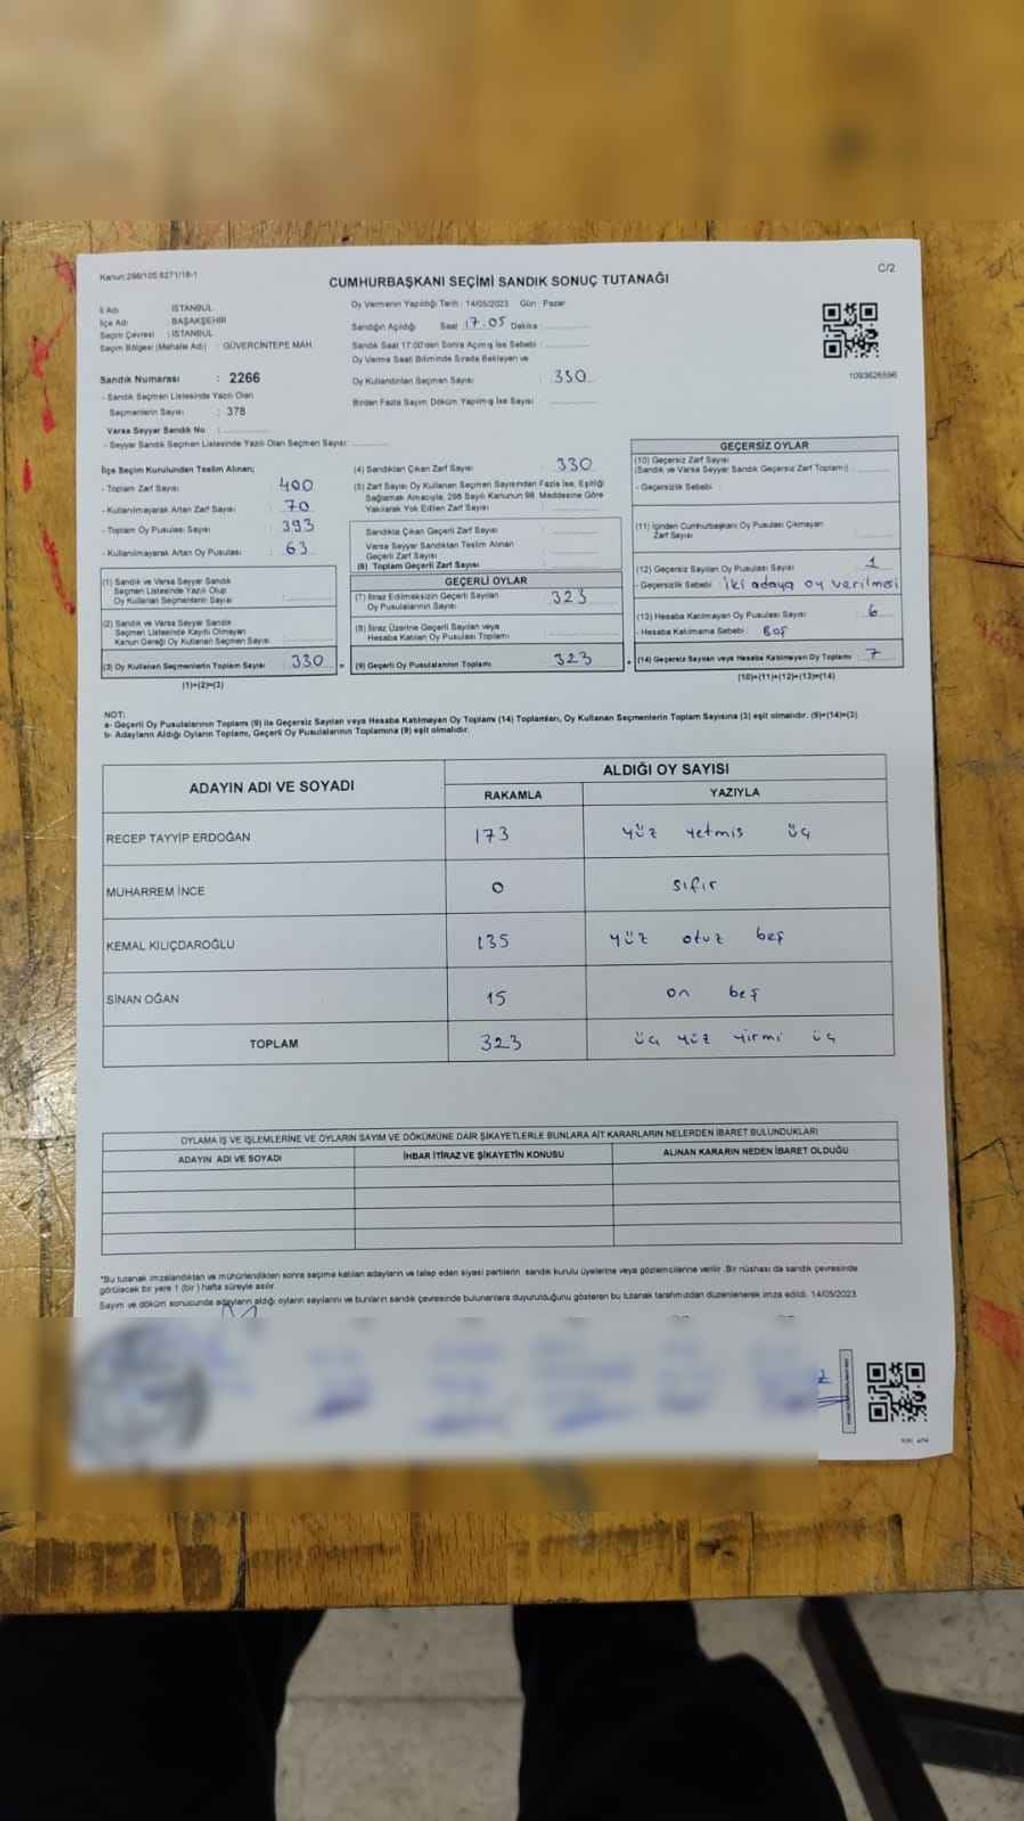 Kanun:298/105 6271/18-1
C/2
CUMHURBAŞKANI SEÇİMİ SANDIK SONUÇ TUTANAĞI
İl Adı : İSTANBUL
İlçe Adı : BAŞAKŞEHİR
Seçim Çevresi : İSTANBUL
Seçim Bölgesi (Mahalle Adı) : GÜVERCİNTEPE MAH.
Sandık Numarası : 2266
- Sandık Seçmen Listesinde Yazılı Olan
Seçmenlerin Sayısı : 378
Varsa Seyyar Sandık No :
- Seyyar Sandık Seçmen Listesinde Yazılı Olan Seçmen Sayısı:
Oy Vermenin Yapıldığı Tarih : 14/05/2023 Gün : Pazar
Sandığın Açıldığı Saat 17.05 Dakika
Sandık Saat 17:00'den Sonra Açılmış İse Sebebi :
Oy Verme Saati Bitiminde Sırada Bekleyen ve
Oy Kullandırılan Seçmen Sayısı : 330
Birden Fazla Sayım Döküm Yapılmış İse Sayısı
1093626596
İlçe Seçim Kurulundan Teslim Alınan;
- Toplam Zarf Sayısı : 400
- Kullanılmayarak Artan Zarf Sayısı : 70
- Toplam Oy Pusulası Sayısı : 393
- Kullanılmayarak Artan Oy Pusulası : 63
(1) Sandık ve Varsa Seyyar Sandık
Seçmen Listesinde Yazılı Olup
Oy Kullanan Seçmenlerin Sayısı
(2) Sandık ve Varsa Seyyar Sandık
Seçmen Listesinde Kayıtlı Olmayan
Kanun Gereği Oy Kullanan Seçmen Sayısı
(3) Oy Kullanan Seçmenlerin Toplam Sayısı 330
(1)+(2)=(3)
(4) Sandıktan Çıkan Zarf Sayısı : 330
(5) Zarf Sayısı Oy Kullanan Seçmen Sayısından Fazla İse, Eşitliği
Sağlamak Amacıyla, 298 Sayılı Kanunun 98. Maddesine Göre
Yakılarak Yok Edilen Zarf Sayısı
Sandıkta Çıkan Geçerli Zarf Sayısı
Varsa Seyyar Sandıktan Teslim Alınan
Geçerli Zarf Sayısı
(6) Toplam Geçerli Zarf Sayısı
GEÇERLİ OYLAR
(7) İtiraz Edilmeksizin Geçerli Sayılan
Oy Pusulalarının Sayısı 323
(8) İtiraz Üzerine Geçerli Sayılan veya
Hesaba Katılan Oy Pusulası Toplamı
(9) Geçerli Oy Pusulalarının Toplamı 323
GEÇERSİZ OYLAR
(10) Geçersiz Zarf Sayısı
(Sandık ve Varsa Seyyar Sandık Geçersiz Zarf Toplamı)
- Geçersizlik Sebebi :
(11) İçinden Cumhurbaşkanı Oy Pusulası Çıkmayan
Zarf Sayısı
(12) Geçersiz Sayılan Oy Pusulası Sayısı 1
- Geçersizlik Sebebi : iki adaya oy verilmesi
(13) Hesaba Katılmayan Oy Pusulası Sayısı 6
- Hesaba Katılmama Sebebi : Boş
(14) Geçersiz Sayılan veya Hesaba Katılmayan Oy Toplamı 7
(10)+(11)+(12)+(13)=(14)
NOT:
a- Geçerli Oy Pusulalarının Toplamı (9) ile Geçersiz Sayılan veya Hesaba Katılmayan Oy Toplamı (14) Toplamları, Oy Kullanan Seçmenlerin Toplam Sayısına (3) eşit olmalıdır. (9)+(14)=(3)
b- Adayların Aldığı Oyların Toplamı, Geçerli Oy Pusulalarının Toplamına (9) eşit olmalıdır.
ADAYIN ADI VE SOYADI
ALDIĞI OY SAYISI
RAKAMLA YAZIYLA
RECEP TAYYİP ERDOĞAN 173 yüz yetmis üç
MUHARREM İNCE 0 sıfır
KEMAL KILIÇDAROĞLU 135 yüz otuz beş
SİNAN OĞAN 15 on beş
TOPLAM 323 üç yüz yirmi üç
OYLAMA İŞ VE İŞLEMLERİNE VE OYLARIN SAYIM VE DÖKÜMÜNE DAİR ŞİKAYETLERLE BUNLARA AİT KARARLARIN NELERDEN İBARET BULUNDUKLARI
ADAYIN ADI VE SOYADI İHBAR İTİRAZ VE ŞİKAYETİN KONUSU ALINAN KARARIN NEDEN İBARET OLDUĞU
*Bu tutanak imzalandıktan ve mühürlendikten sonra seçime katılan adayların ve talep eden siyasi partilerin sandık kurulu üyelerine veya gözlemcilerine verilir. Bir nüshası da sandık çevresinde
görülecek bir yere 1 (bir) hafta süreyle asılır.
Sayım ve döküm sonucunda adayların aldığı oyların sayılarını ve bunların sandık çevresinde bulunanlara duyurulduğunu gösteren bu tutanak tarafımızdan düzenlenerek imza edildi. 14/05/2023